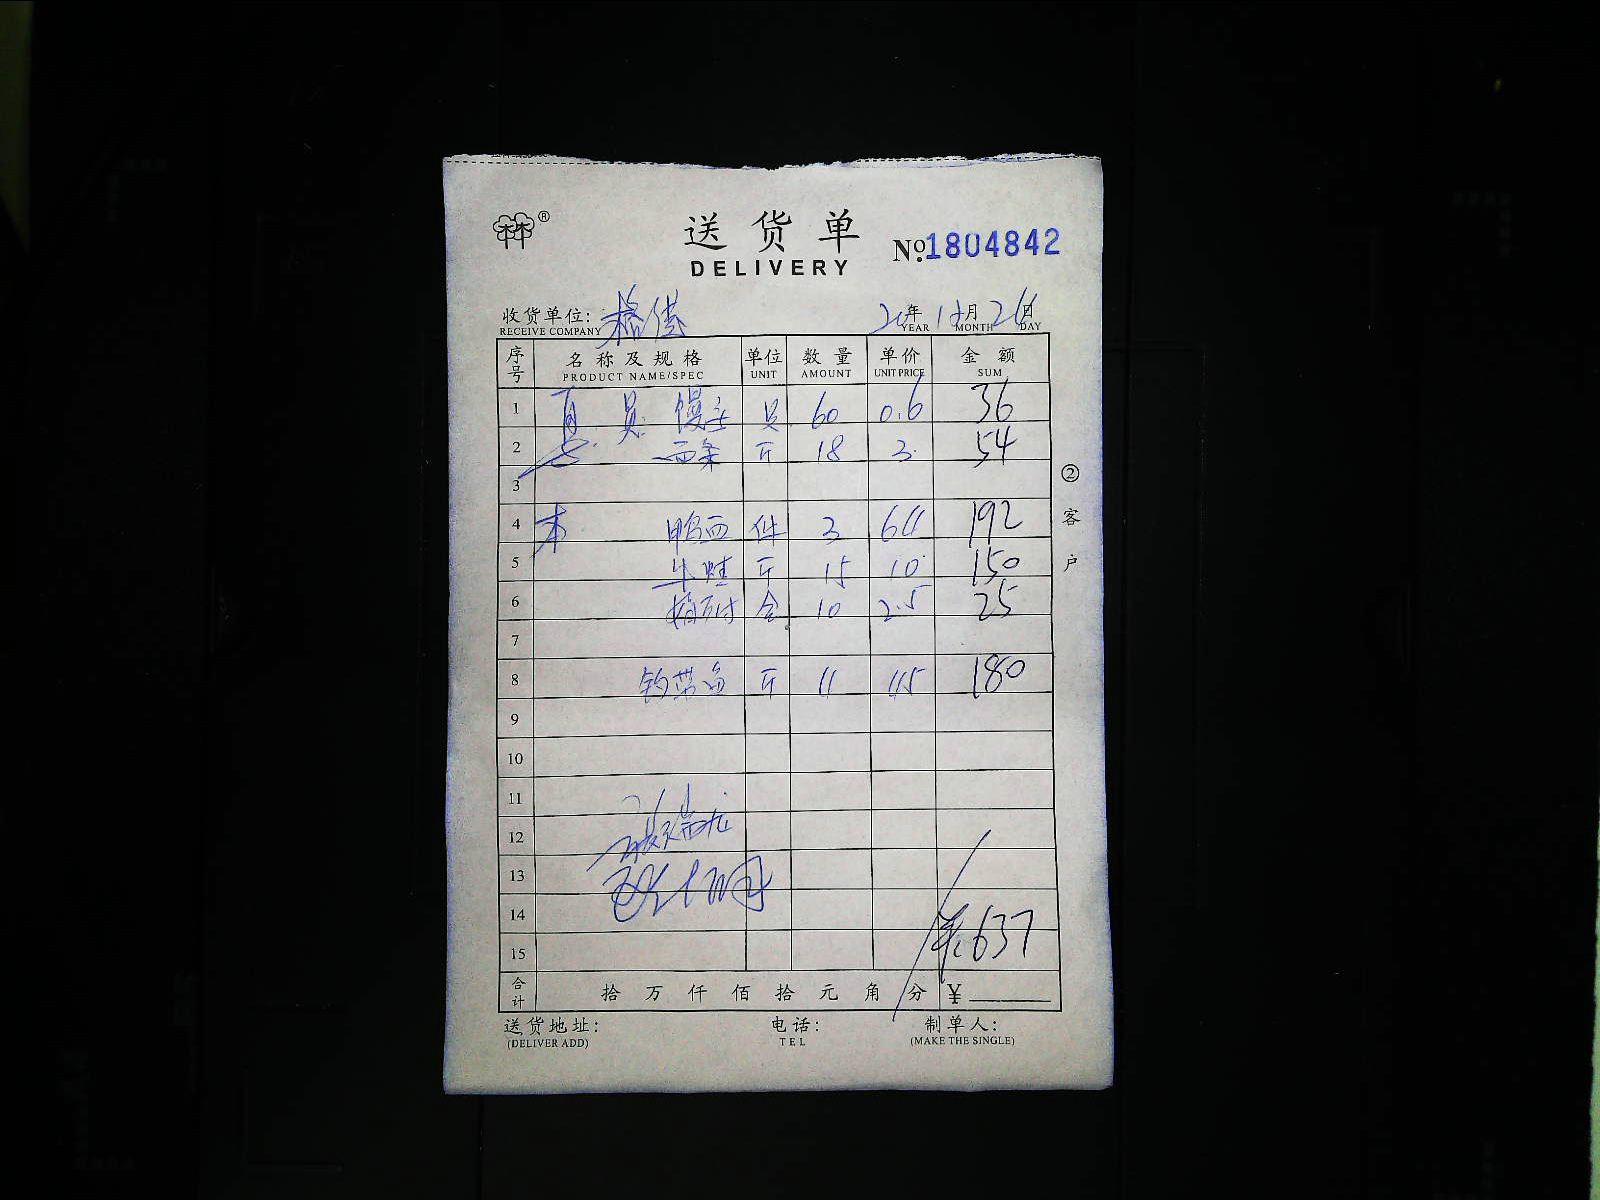 ®
送货单
DELIVERY
№:1804842
收货单位:
RECEIVE COMPANY
年 月 26日
YEAR MONTH DAY
序号 名称及规格 单位 数量 单价 金额
PRODUCT NAME/SPEC UNIT AMOUNT UNIT PRICE SUM
1 员 馒头 只 60 0.6 36
2 面条 斤 18 3 54
3
4 鸭血 件 3 64 192
5 牛蛙 斤 15 10 150
6 盒 10 2.5 25
7
8 钓带鱼 斤 180
9
10
11
12
13
14
15
¥637
合计 拾 万 仟 佰 拾 元 角 分 ¥
送货地址:
(DELIVER ADD)
电话:
TEL
制单人:
(MAKE THE SINGLE)
② 客户